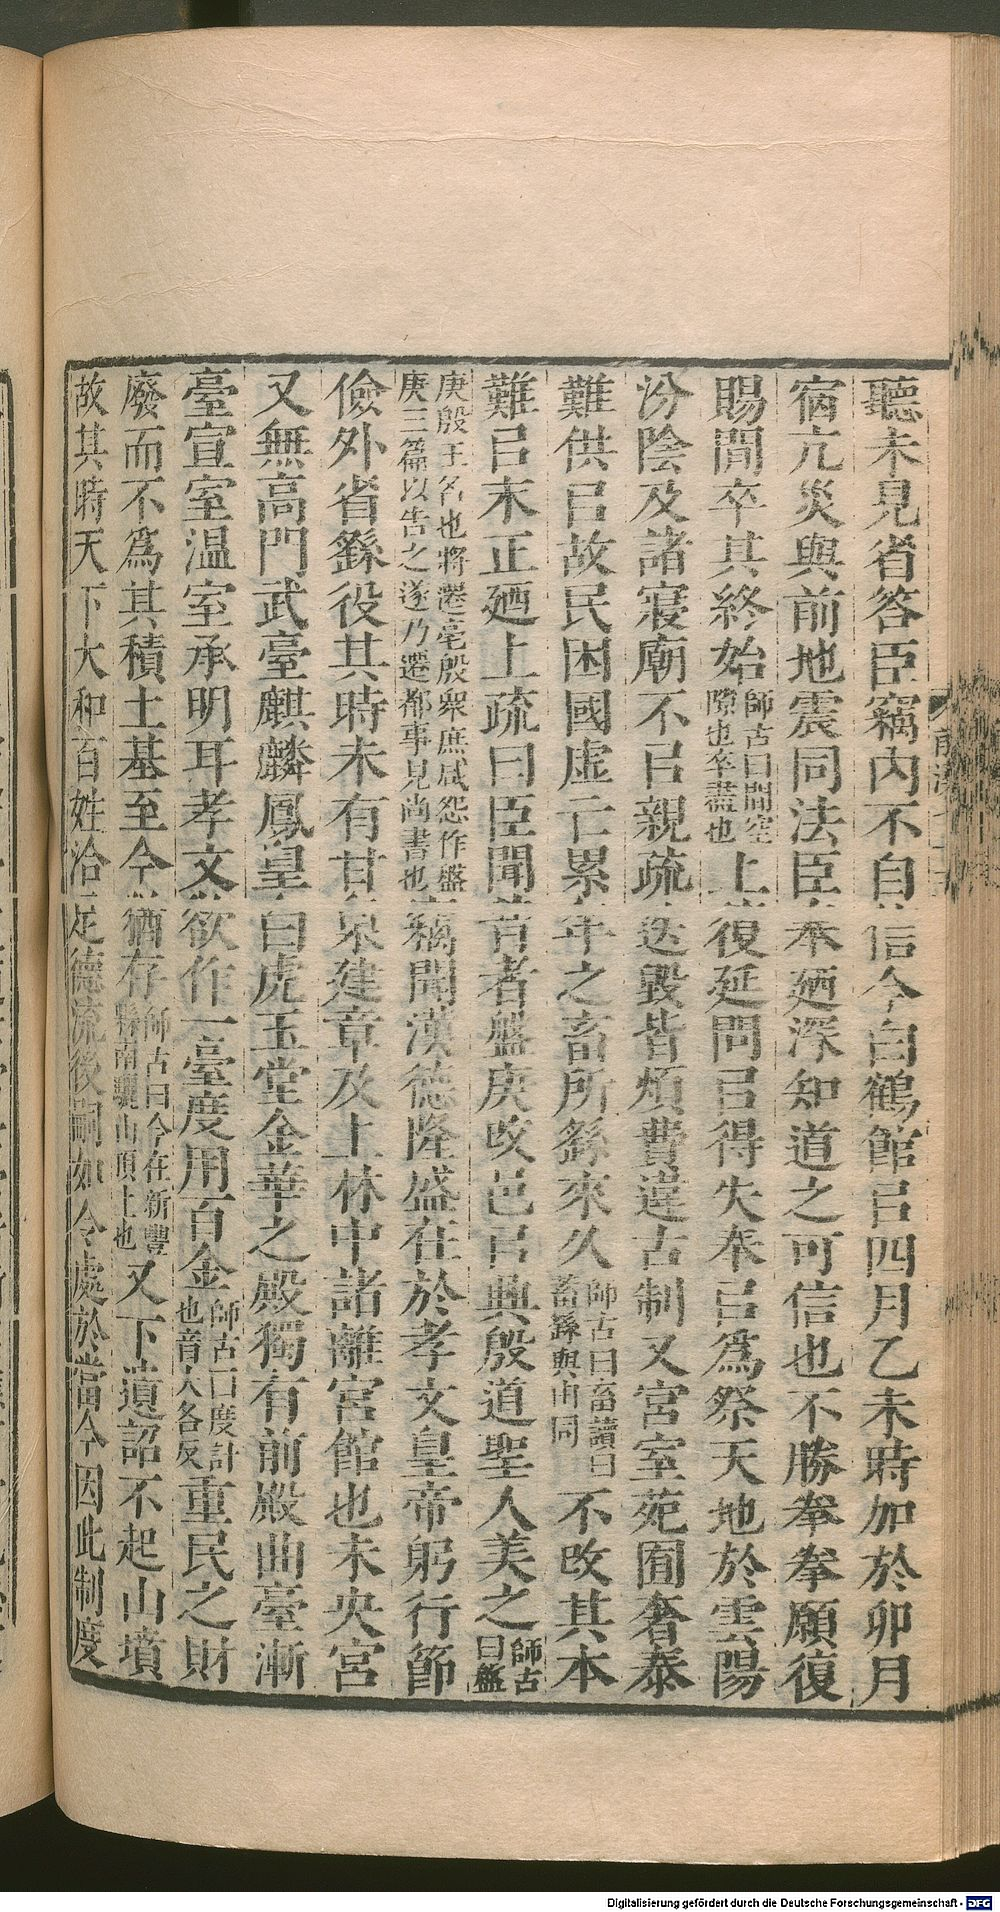 聽未見省答臣竊內不自信今白鶴館㠯四月乙未時加於卯月
宿亢災與前地震同法臣奉廼深知道之可信也不勝拳拳願復
賜閒卒其終始師古曰閒空隙也卒盡也上復延問㠯得失奉㠯爲祭天地於雲陽
汾陰及諸寢廟不㠯親疏迭毀皆煩費違古制又宮室苑囿奢泰
難供㠯故民困國虛亡累年之畜所繇來久師古曰畜讀曰蓄繇與由同不改其本
難㠯末正廼上疏曰臣聞昔者盤庚改邑㠯興殷道聖人美之師古曰盤
庚殷王名也將遷亳殷衆庶咸怨作盤庚三篇以告之遂乃遷都事見尚書也竊聞漢德隆盛在於孝文皇帝躬行節
儉外省繇役其時未有甘泉建章及上林中諸離宮館也未央宮
又無高門武臺麒麟鳳皇白虎玉堂金華之殿獨有前殿曲臺漸
臺宣室温室承明耳孝文欲作一臺度用百金師古曰度計也音大各反重民之財
廢而不爲其積土基至今猶存師古曰今在新豐縣南驪山頂上也又下遺詔不起山墳
故其時天下大和百姓洽足德流後嗣如令處於當今因此制度
前漢
Digitalisierung gefördert durch die Deutsche Forschungsgemeinschaft - DFG